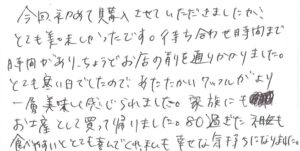 今回、初めて購入させていただきましたが、
とても美味しかったです。待ち合わせ時間まで
時間があり、ちょうどお店の前を通りかかりました。
とても寒い日でしたので、あたたかいワッフルがより
一層美味しく感じられました。家族にも
お土産として買って帰りました。80過ぎた
食べやすいととても喜んでくれ、私も幸せな気持ちになりました。